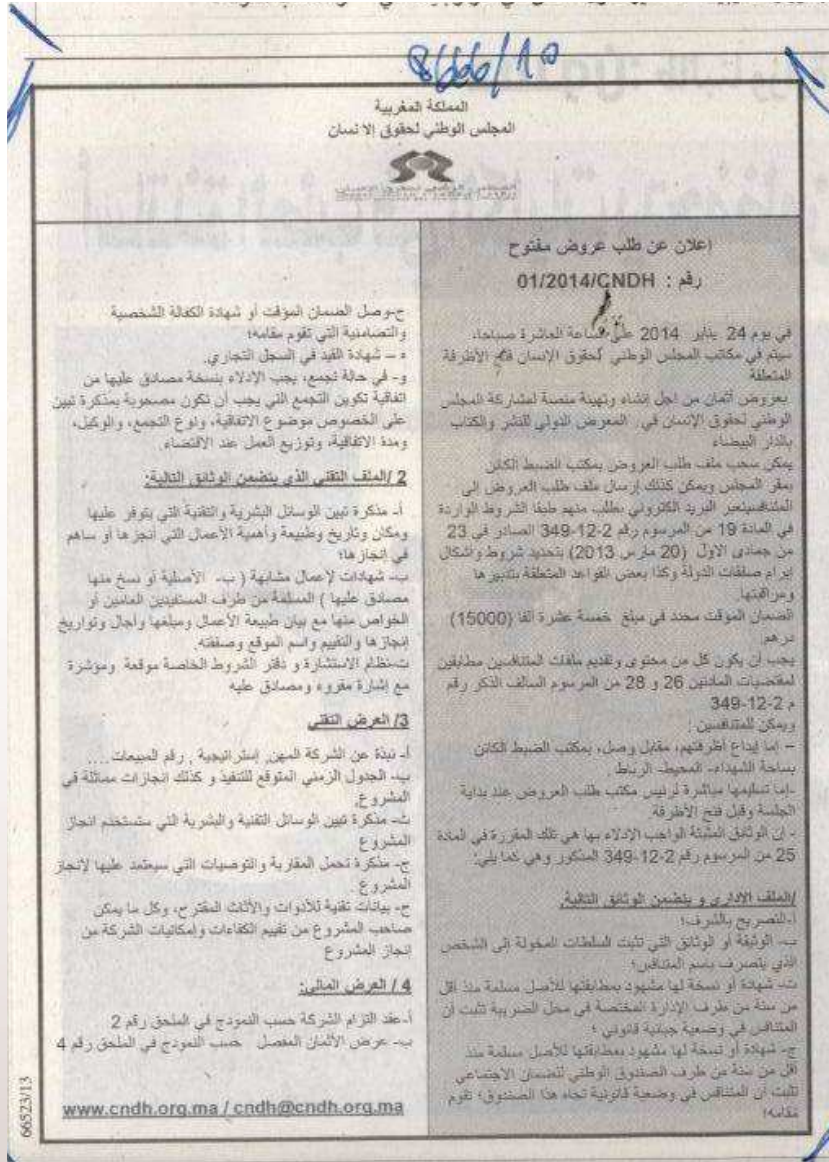 8666/10
المملكة المغربية
المجلس الوطني لحقوق الا نسان
إعلان عن طلب عروض مفتوح
رقم : 01/2014/CNDH
في يوم 24 يناير 2014 على الساعة العاشرة صباحا،
سيتم في مكاتب المجلس الوطني لحقوق الإنسان فتح الأظرفة
المتعلقة
بعروض أثمان من اجل إنشاء وتهيئة منصة لمشاركة المجلس
الوطني لحقوق الإنسان في المعرض الدولي للنشر والكتاب
بالدار البيضاء
يمكن سحب ملف طلب العروض بمكتب الضبط الكائن
بمقر المجلس ويمكن كذلك إرسال ملف طلب العروض إلى
المتنافسينعبر البريد الكتروني بطلب منهم طبقا الشروط الواردة
في المادة 19 من المرسوم رقم 2-12-349 الصادر في 23
من جمادى الاول (20 مارس 2013) بتحديد شروط وأشكال
إبرام صفقات الدولة وكذا بعض القواعد المتعلقة بتدبيرها
ومراقبتها.
الضمان الموقت محدد في مبلغ خمسة عشرة ألفا (15000)
درهم.
يجب أن يكون كل من محتوى وتقديم ملفات المتنافسين مطابقين
لمقتضيات المادتين 26 و 28 من المرسوم السالف الذكر رقم
م 2-12-349
ويمكن للمتنافسين :
– إما إيداع أظرفتهم، مقابل وصل، بمكتب الضبط الكائن
بساحة الشهداء- المحيط- الرباط .
-إما تسليمها مباشرة لرئيس مكتب طلب العروض عند بداية
الجلسة وقبل فتح الأظرفة.
- إن الوثائق المثبتة الواجب الإدلاء بها هي تلك المقررة في المادة
25 من المرسوم رقم 2-12-349 المذكور وهي كما يلي:
/الملف الاداري و يتضمن الوثائق التالية:
أ-التصريح بالشرف؛
ب- الوثيقة أو الوثائق التي تثبت السلطات المخولة إلى الشخص
الذي يتصرف باسم المتنافس؛
ت- شهادة أو نسخة لها مشهود بمطابقتها للأصل مسلمة منذ أقل
من سنة من طرف الإدارة المختصة في محل الضريبة تثبت أن
المتنافس في وضعية جبائية قانوني ؛
ج- شهادة أو نسخة لها مشهود بمطابقتها للأصل مسلمة منذ
أقل من سنة من طرف الصندوق الوطني للضمان الاجتماعي
تثبت أن المتنافس في وضعية قانونية تجاه هذا الصندوق؛ تقوم
مقامه؛
ح-وصل الضمان المؤقت أو شهادة الكفالة الشخصية
والتضامنية التي تقوم مقامه؛
ه – شهادة القيد في السجل التجاري.
و- في حالة تجمع، يجب الإدلاء بنسخة مصادق عليها من
اتفاقية تكوين التجمع التي يجب أن تكون مصحوبة بمذكرة تبين
على الخصوص موضوع الاتفاقية، ونوع التجمع، والوكيل،
ومدة الاتفاقية، وتوزيع العمل عند الاقتضاء.
2 /الملف التقني الذي يتضمن الوثائق التالية:
أ- مذكرة تبين الوسائل البشرية والتقنية التي يتوفر عليها
ومكان وتاريخ وطبيعة وأهمية الأعمال التي أنجزها أو ساهم
في إنجازها؛
ب- شهادات لإعمال مشابهة ( ب- الأصلية أو نسخ منها
مصادق عليها ) المسلمة من طرف المستفيدين العامين أو
الخواص منها مع بيان طبيعة الأعمال ومبلغها وأجال وتواريخ
إنجازها والتقييم واسم الموقع وصفته.
ت-نظام الاستشارة و دفتر الشروط الخاصة موقعة ومؤشرة
مع إشارة مقروء ومصادق عليه
3/ العرض التقني
أ- نبذة عن الشركة المهن, إستراتيجية , رقم المبيعات....
ب- الجدول الزمني المتوقع للتنفيذ و كذلك انجازات مماثلة في
المشروع,
ث- مذكرة تبين الوسائل التقنية والبشرية التي ستستخدم انجاز
المشروع
ج- مذكرة تحمل المقاربة والتوصيات التي سيعتمد عليها لإنجاز
المشروع .
ح- بيانات تقنية للأدوات والأثاث المقترح، وكل ما يمكن
صاحب المشروع من تقييم الكفاءات وإمكانيات الشركة من
انجاز المشروع
4 / العرض المالي:
أ-عقد التزام الشركة حسب النمودج في الملحق رقم 2
ب- عرض الأثمان المفصل حسب النمودج في الملحق رقم 4
www.cndh.org.ma / cndh@cndh.org.ma
66523/13